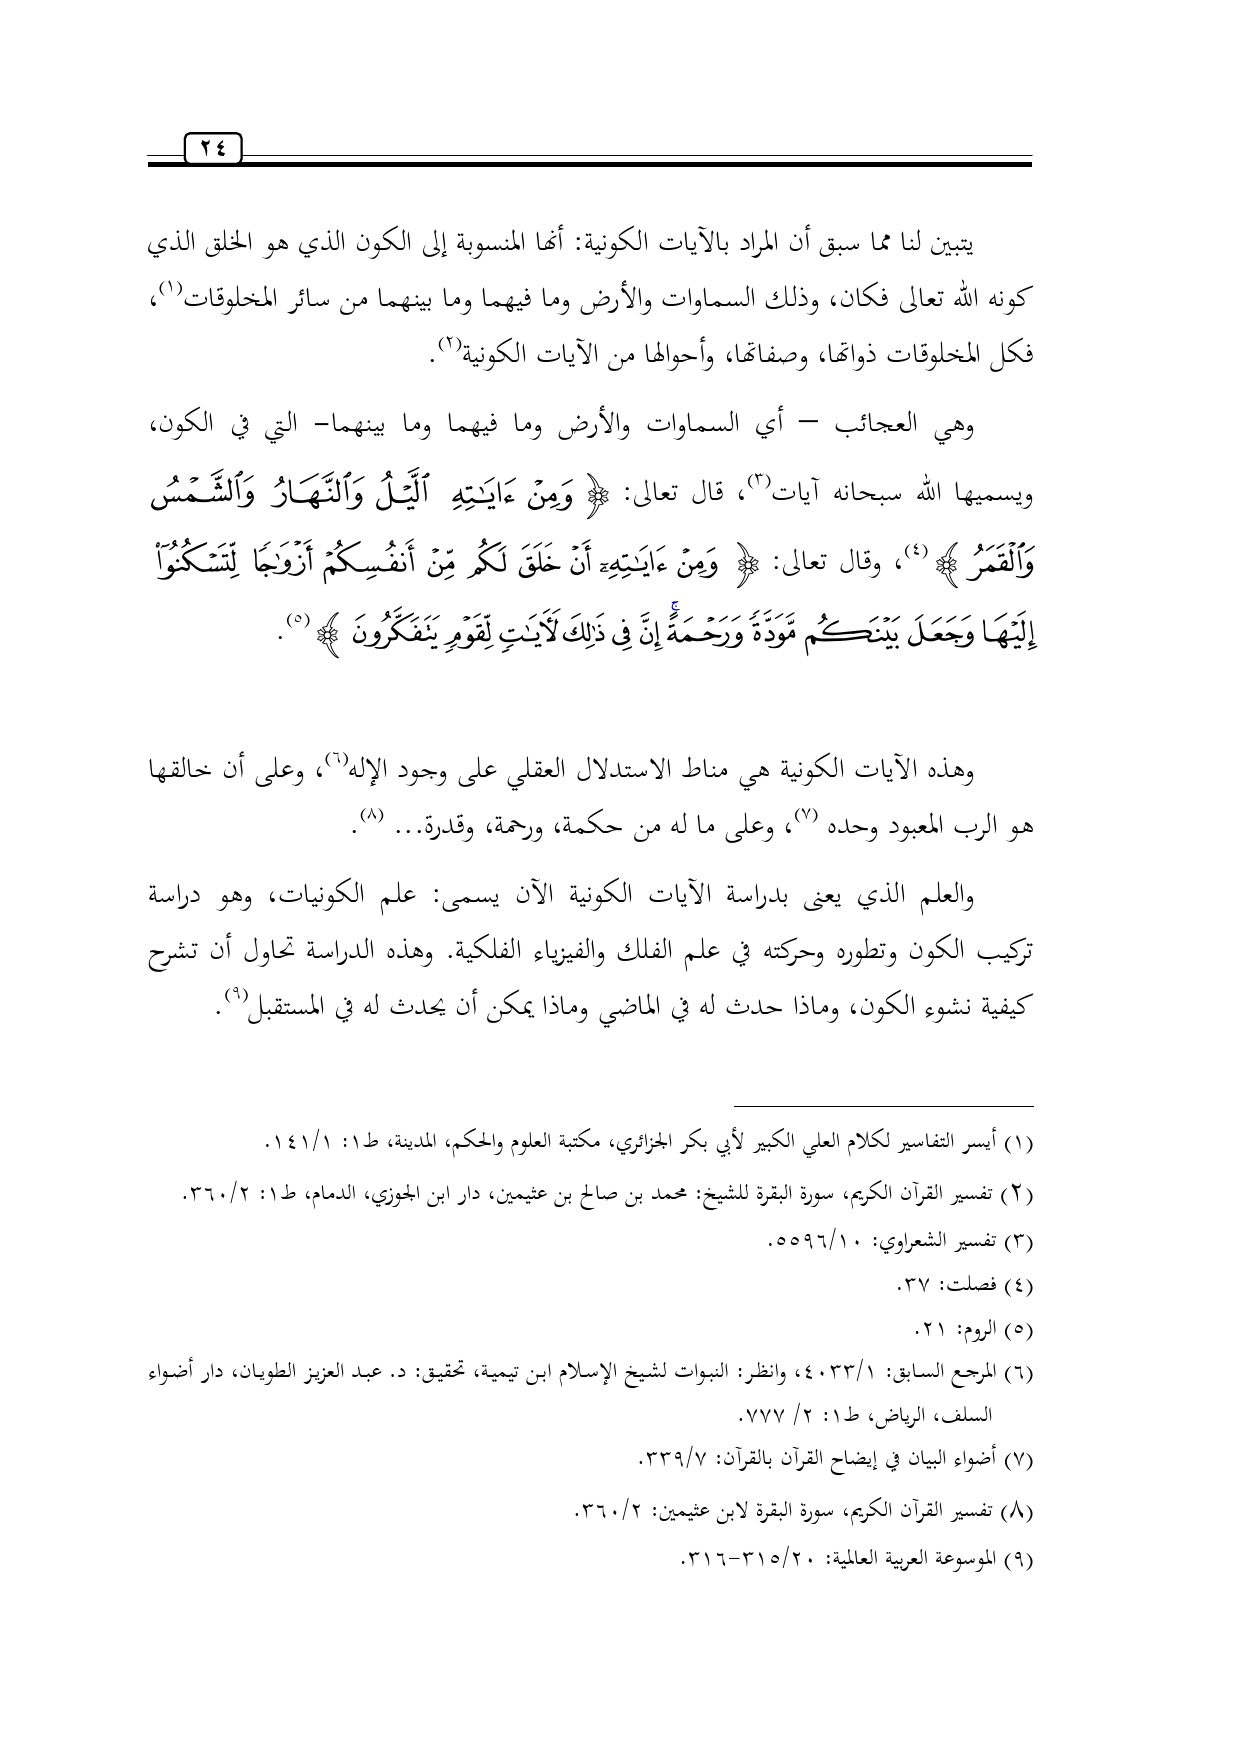 ٢٤
يتبين لنا مما سبق أن المراد بالآيات الكونية: أنها المنسوبة إلى الكون الذي هو الخلق الذي
كونه الله تعالى فكان، وذلك السماوات والأرض وما فيهما وما بينهما من سائر المخلوقات(١)،
فكل المخلوقات ذواتها، وصفاتها، وأحوالها من الآيات الكونية(٢).
وهي العجائب – أي السماوات والأرض وما فيهما وما بينهما– التي في الكون،
ويسميها الله سبحانه آيات(٣)، قال تعالى: ﴿ وَمِنْ ءَايَـٰتِهِ ٱلَّيْلُ وَٱلنَّهَارُ وَٱلشَّمْسُ
وَٱلْقَمَرُ ﴾(٤)، وقال تعالى: ﴿ وَمِنْ ءَايَـٰتِهِۦٓ أَنْ خَلَقَ لَكُم مِّنْ أَنفُسِكُمْ أَزْوَٰجًا لِّتَسْكُنُوٓا۟
إِلَيْهَا وَجَعَلَ بَيْنَكُم مَّوَدَّةً وَرَحْمَةً ۚ إِنَّ فِى ذَٰلِكَ لَـَٔايَـٰتٍ لِّقَوْمٍ يَتَفَكَّرُونَ ﴾(٥).
وهذه الآيات الكونية هي مناط الاستدلال العقلي على وجود الإله(٦)، وعلى أن خالقها
هو الرب المعبود وحده (٧)، وعلى ما له من حكمة، ورحمة، وقدرة... (٨).
والعلم الذي يعنى بدراسة الآيات الكونية الآن يسمى: علم الكونيات، وهو دراسة
تركيب الكون وتطوره وحركته في علم الفلك والفيزياء الفلكية. وهذه الدراسة تحاول أن تشرح
كيفية نشوء الكون، وماذا حدث له في الماضي وماذا يمكن أن يحدث له في المستقبل(٩).
(١) أيسر التفاسير لكلام العلي الكبير لأبي بكر الجزائري، مكتبة العلوم والحكم، المدينة، ط١: ١٤١/١.
(٢) تفسير القرآن الكريم، سورة البقرة للشيخ: محمد بن صالح بن عثيمين، دار ابن الجوزي، الدمام، ط١: ٣٦٠/٢.
(٣) تفسير الشعراوي: ٥٥٩٦/١٠.
(٤) فصلت: ٣٧.
(٥) الروم: ٢١.
(٦) المرجع السابق: ٤٠٣٣/١، وانظر: النبوات لشيخ الإسلام ابن تيمية، تحقيق: د. عبد العزيز الطويان، دار أضواء
السلف، الرياض، ط١: ٢/ ٧٧٧.
(٧) أضواء البيان في إيضاح القرآن بالقرآن: ٣٣٩/٧.
(٨) تفسير القرآن الكريم، سورة البقرة لابن عثيمين: ٣٦٠/٢.
(٩) الموسوعة العربية العالمية: ٣١٥/٢٠–٣١٦.